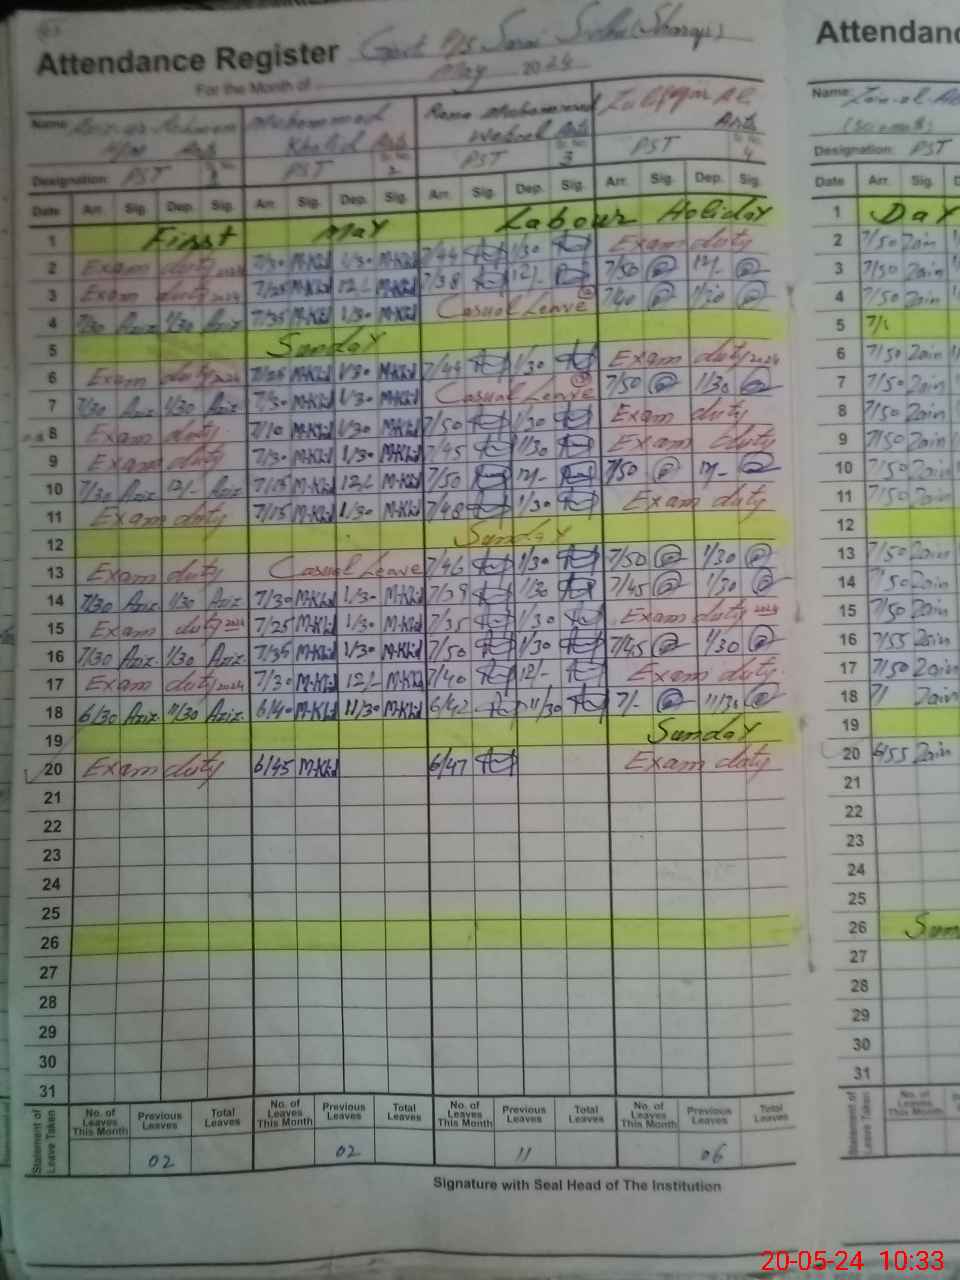 Attendance Register Govt P/S Sarai Sidhu (Sharqi)
For the Month of May 2024
Name: Aziz-ur-Rehman H/M Arts
Muhammad Khalid Arts
Rana Muhammad Waheed Arts
Zulfiqar Ali Arts
Designation: PST 1 PST Sr. No. 2 PST Sr. No. 3 PST Sr. No. 4
Date Arr. Sig. Dep. Sig. Arr. Sig. Dep. Sig. Arr. Sig. Dep. Sig. Arr. Sig. Dep. Sig.
1 First May Labour Holiday
2 Exam duty 2024 7/30 M-Kld 1/30 M-Kld 7/44 1/30 Exam duty
3 Exam duty 2024 7/25 M-Kld 12/- M-Kld 7/38 12/- 7/50 12/-
4 7/30 Aziz 1/30 Aziz 7/35 M-Kld 1/30 M-Kld Casual Leave 7/40 1/30
5 Sunday
6 Exam duty 2024 7/25 M-Kld 1/30 M-Kld 7/44 1/30 Exam duty 2024
7 7/30 Aziz 1/30 Aziz 7/30 M-Kld 1/30 M-Kld Casual Leave 7/50 1/30
8 Exam duty 7/10 M-Kld 1/30 M-Kld 7/50 1/30 Exam duty
9 Exam duty 7/30 M-Kld 1/30 M-Kld 7/45 1/30 Exam duty
10 7/30 Aziz 12/- Aziz 7/15 M-Kld 12/- M-Kld 7/50 12/- 7/50 12/-
11 Exam duty 7/15 M-Kld 1/30 M-Kld 7/48 1/30 Exam duty
12 Sunday
13 Exam duty Casual Leave 7/46 1/30 7/50 1/30
14 7/30 Aziz 1/30 Aziz 7/30 M-Kld 1/30 M-Kld 7/39 1/30 7/45 1/30
15 Exam duty 2024 7/25 M-Kld 1/30 M-Kld 7/35 1/30 Exam duty 2024
16 7/30 Aziz 1/30 Aziz 7/35 M-Kld 1/30 M-Kld 7/50 1/30 7/45 1/30
17 Exam duty 2024 7/30 M-Kld 12/- M-Kld 7/40 12/- Exam duty
18 6/30 Aziz 11/30 Aziz 6/40 M-Kld 11/30 M-Kld 6/42 11/30 7/- 11/30
19 Sunday
20 Exam duty 6/45 M-Kld 6/47 Exam duty
21
22
23
24
25
26
27
28
29
30
31
Statement of Leave Taken
No. of Leaves This Month Previous Leaves Total Leaves No. of Leaves This Month Previous Leaves Total Leaves No. of Leaves This Month Previous Leaves Total Leaves No. of Leaves This Month Previous Leaves Total Leaves
02 02 11 06
Signature with Seal Head of The Institution
Attendanc
Name:
Designation: PST
Date Arr. Sig. D
1 DAY
2 7/50 Zain
3 7/50 Zain
4 7/50 Zain
5
6 7/50 Zain
7 7/50 Zain
8 7/50 Zain
9 7/50 Zain
10 7/50 Zain
11 7/50 Zain
12
13 7/50 Zain
14 7/50 Zain
15 7/50 Zain
16 7/55 Zain
17 7/50 Zain
18 7/ Zain
19
20 6/55 Zain
21
22
23
24
25
26 Sun
27
28
29
30
31
Statement of Leave Taken
No. of Leaves This Month Previous Leaves
20-05-24 10:33